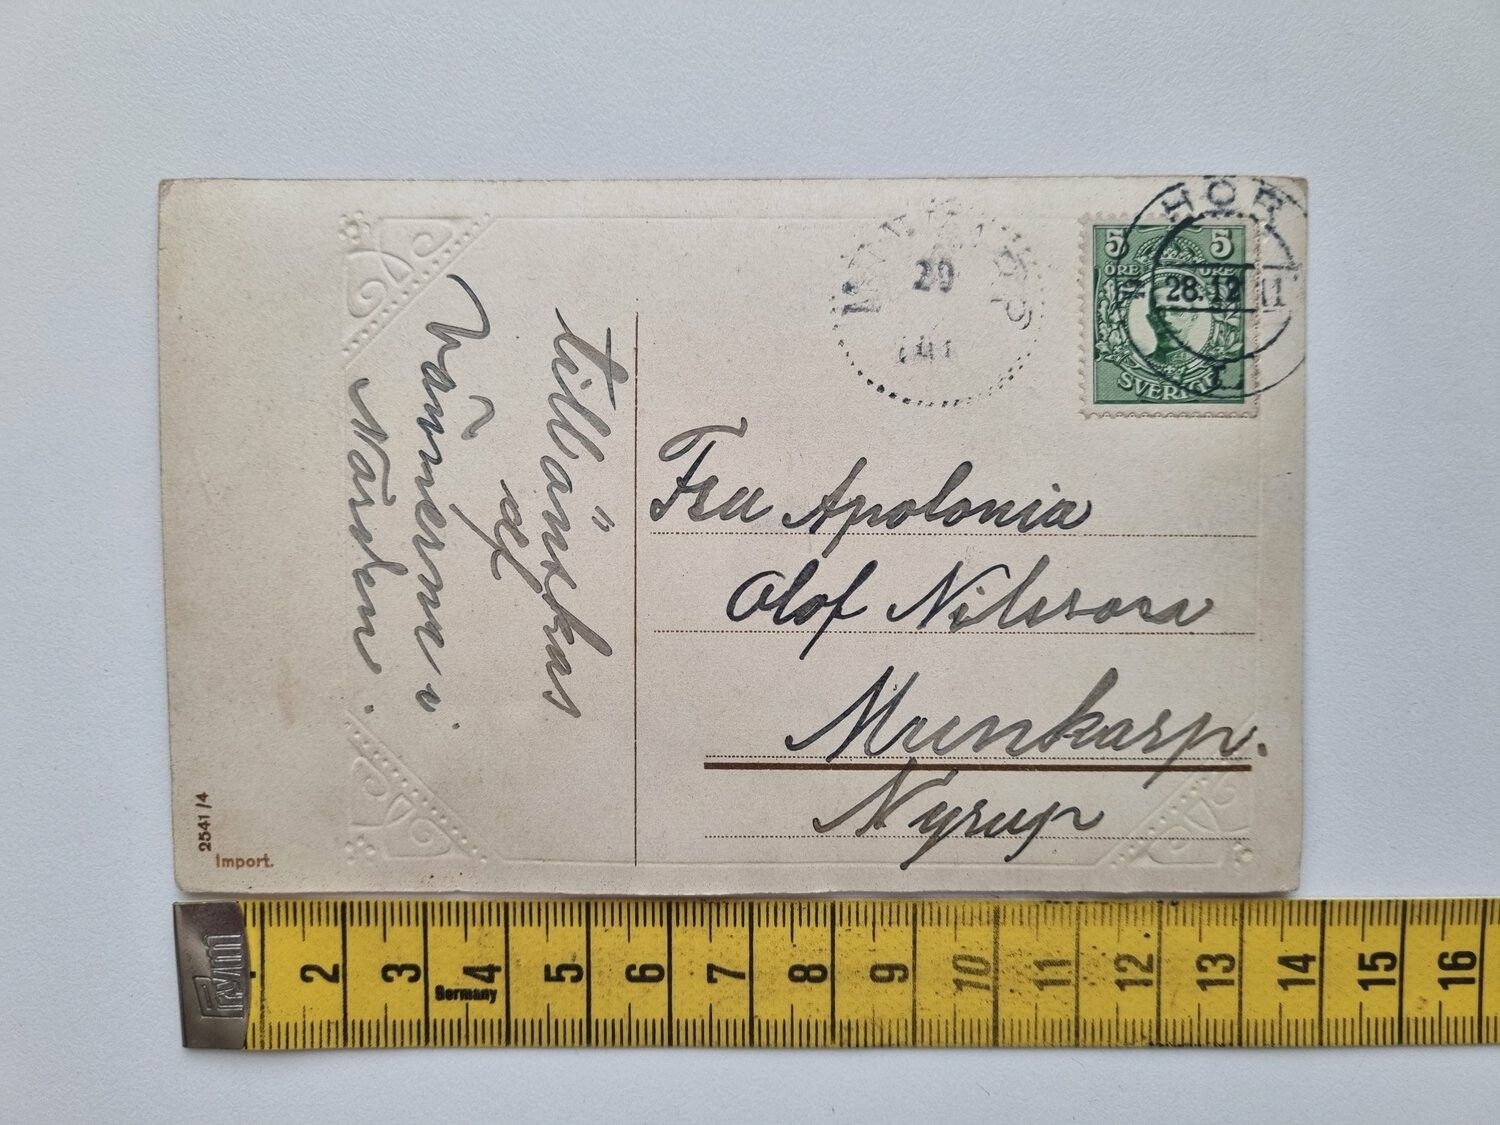 tillönskas
af
Vännerna i
Närken.
2541/4
Import.
20
HÖR
28.12 11
5 5
ÖRE ÖRE
SVERIGE
Fru Apolonia
Olof Nilsson
Munkarp.
Nyrup
Prym
2 3 4 5 6 7 8 9 10 11 12 13 14 15 16
Germany